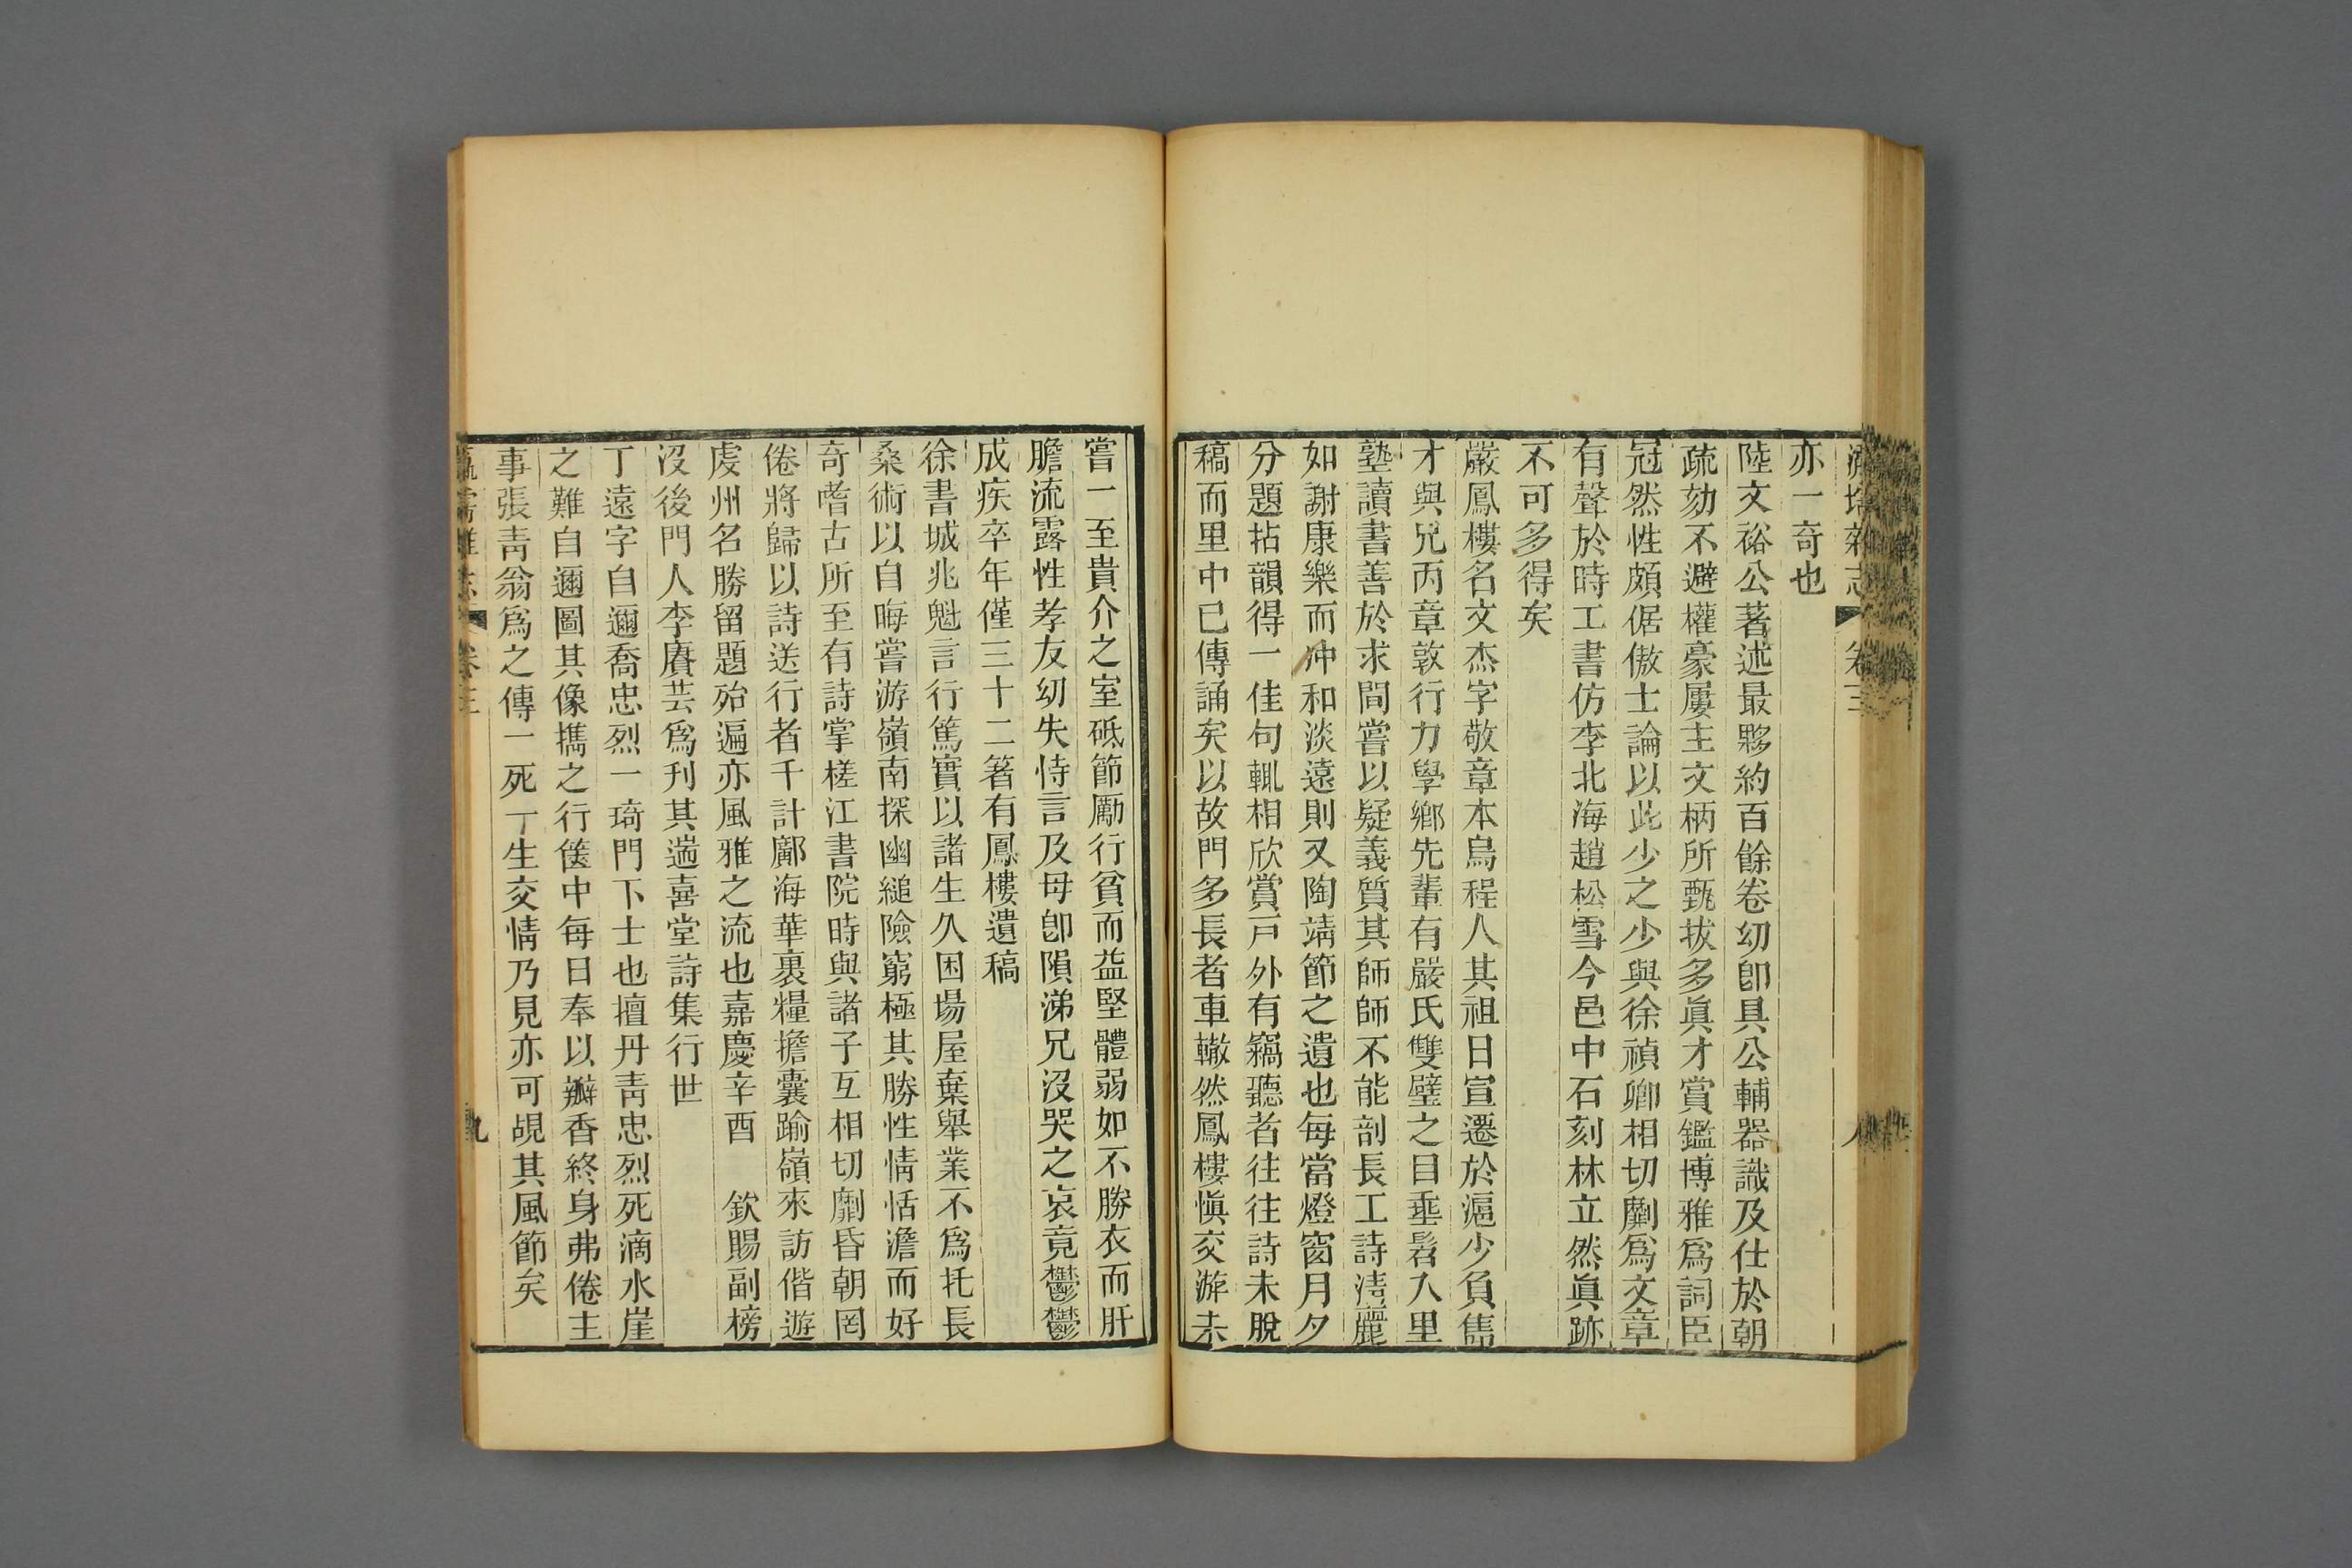 卷三
亦一奇也
陸文裕公著述最夥約百餘卷幼卽具公輔器識及仕於朝
疏劾不避權豪屢主文柄所甄拔多眞才賞鑑博雅爲詞臣
冠然性頗倨傲士論以此少之少與徐禎卿相切劘爲文章
有聲於時工書仿李北海趙松雪今邑中石刻林立然眞跡
不可多得矣
嚴鳳樓名文杰字敬章本烏程人其祖日宣遷於滬少負雋
才與兄丙章敦行力學鄉先輩有嚴氏雙璧之目垂髫入里
塾讀書善於求間嘗以疑義質其師師不能剖長工詩淸麗
如謝康樂而冲和淡遠則又陶靖節之遺也每當燈窗月夕
分題拈韻得一佳句輒相欣賞戸外有竊聽者往往詩未脫
稿而里中已傳誦矣以故門多長者車轍然鳳樓愼交游未
嘗一至貴介之室砥節勵行貧而益堅體弱如不勝衣而肝
膽流露性孝友幼失恃言及母卽隕涕兄沒哭之哀竟鬱鬱
成疾卒年僅三十二箸有鳳樓遺稿
徐書城兆魁言行篤實以諸生久困場屋棄舉業不爲托長
桑術以自晦嘗游嶺南探幽縋險窮極其勝性情恬澹而好
奇嗜古所至有詩掌槎江書院時與諸子互相切劘昏朝罔
倦將歸以詩送行者千計鄺海華裹糧擔囊踰嶺來訪偕遊
虔州名勝留題殆遍亦風雅之流也嘉慶辛酉　欽賜副榜
沒後門人李賡芸爲刋其遄喜堂詩集行世
丁遠字自邇喬忠烈一琦門下士也擅丹靑忠烈死滴水崖
之難自邇圖其像擕之行篋中每日奉以瓣香終身弗倦主
事張靑翁爲之傳一死一生交情乃見亦可覘其風節矣
卷三
九